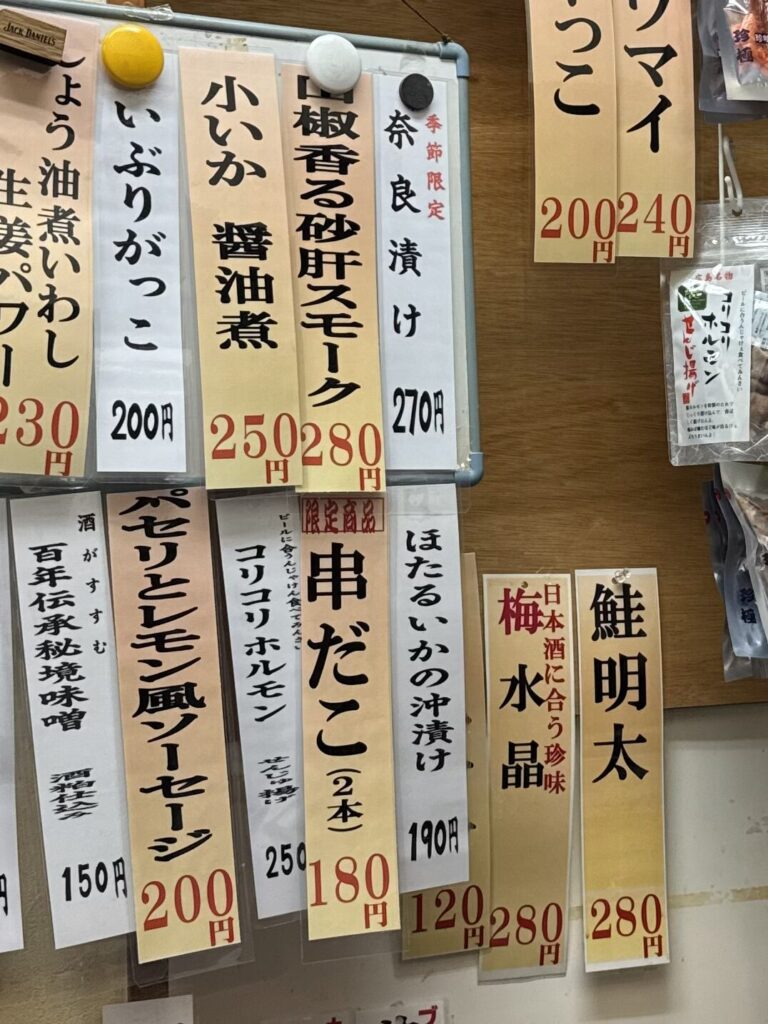 JACK DANIEL'S
しょう油煮いわし
生姜パワー
230円
いぶりがっこ
200円
小いか 醤油煮
250円
山椒香る砂肝スモーク
280円
季節限定
奈良漬け
270円
っこ
200円
ワマイ
240円
珍極
ビールに合うんじゃけん食べてみんさい
コリコリ
ホルモン
せんじ揚げ
酒がすすむ
百年伝承秘境味噌
酒粕仕込み
150円
パセリとレモン風ソーセージ
200円
ビールに合うんじゃけん食べてみんさい
コリコリ ホルモン
せんじゅ揚げ
250
限定商品
串だこ(2本)
180円
ほたるいかの沖漬け
190円
120円
日本酒に合う珍味
梅水晶
280円
鮭明太
280円
円
珍極